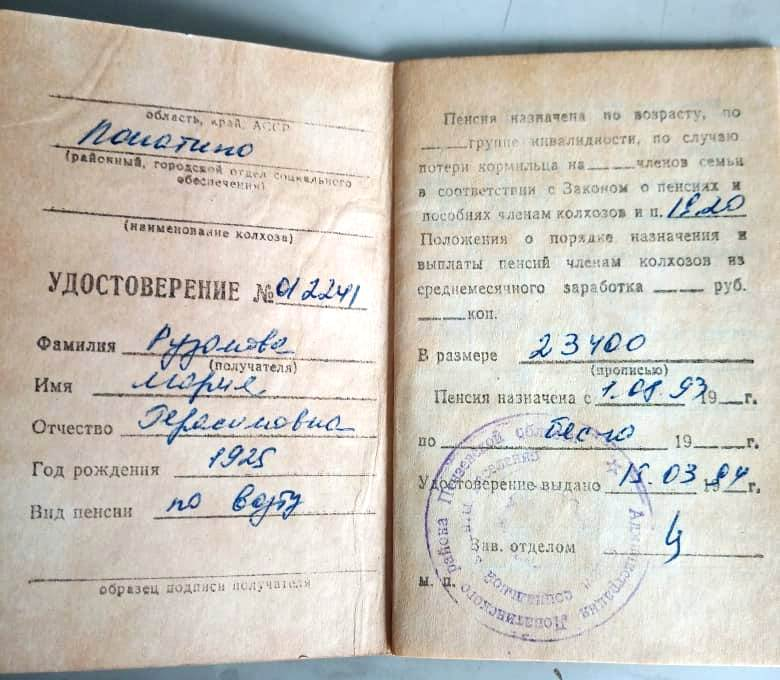 область, край, АССР
Лопатино
(районный, городской отдел социального
обеспечения)
(наименование колхоза)
УДОСТОВЕРЕНИЕ № 012241
Фамилия
(получателя)
Имя Мария
Отчество Герасимовна
Год рождения 1925
Вид пенсии по возту
образец подписи получателя
Пенсия назначена по возрасту, по
группе инвалидности, по случаю
потери кормильца на членов семьи
в соответствии с Законом о пенсиях и
пособиях членам колхозов и п. 1820
Положения о порядке назначения и
выплаты пенсий членам колхозов из
среднемесячного заработка руб.
коп.
В размере 23400
(прописью)
Пенсия назначена с 1.08.93 19 г.
по бессро 19 г.
Удостоверение выдано 15.03.94 19 г.
Зав. отделом
м. п.
Администрация Лопатинского района Пензенской области
социальной защиты населения